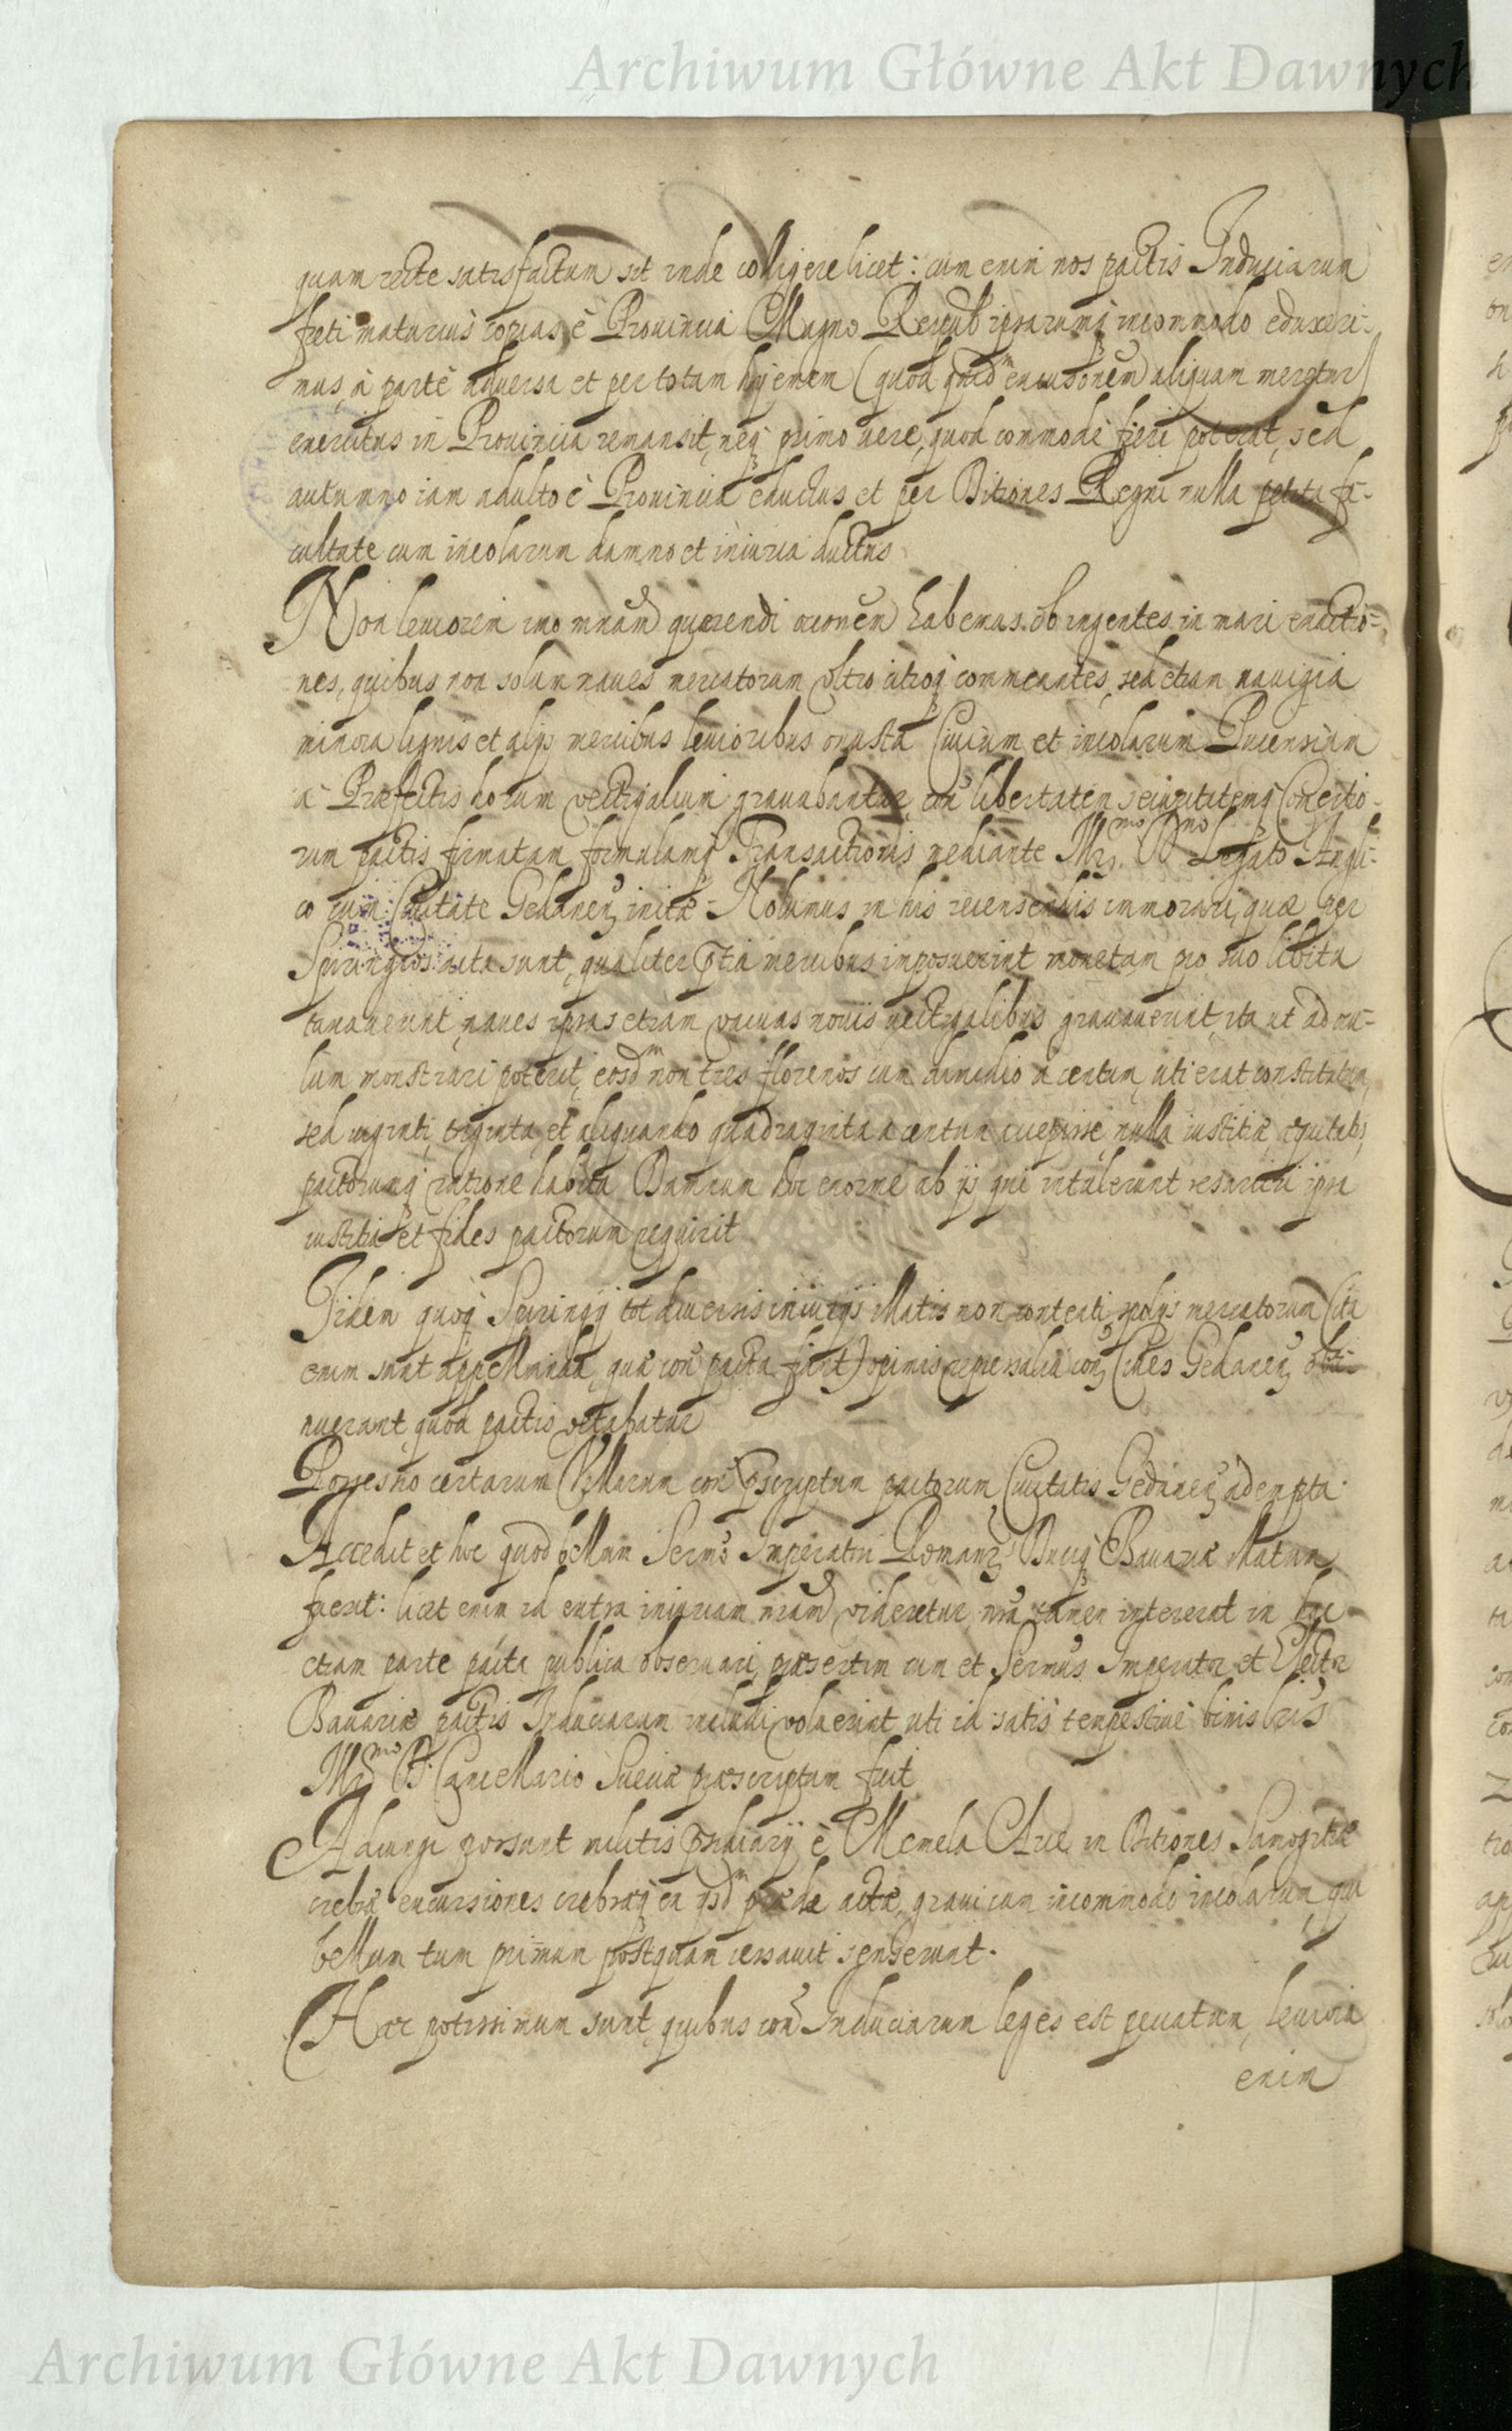 Archiwum Główne Akt Dawnych
quam recte satisfactum sit inde colligere licet: cum enim nos pactis Induciarum
freti maturius copias è Prouincia Magno Reipub ipsarumq incommodo eduxeri-
mus, à parte aduersa et per totam hyemem (quod quidem excusonem aliquam meretur)
exercitus in Prouincia remansit, neq primo uere, quod commodè fieri poterat, sed
autumno iam adulto è Prouincia eductus et per Ditiones Regni nulla petita fa-
cultate cum incolarum damno et iniuria ductus
Non leuiorem imo mnam querendi oconem habemus ob ingentes in mari exactio-
nes, quibus non solum naues mercatorum vltro citroq commeantes, sed etiam nauigia
minora lignis et alijs mercibus leuioribus onusta Ciuium et incolarum Pucensium
à Præfectis horum vectigalium grauabantur, con libertatem securitatemq Comertio-
rum pactis firmatam, formulamq Transactionis mediante Illrmo Dno Legato Angli-
co cum Ciuitate Gedanen initæ. Nolumus in his recensendis immorari, quæ per
Spiringios acta sunt, qualiter ptia mercibus imposuerint monetam pro suo libitu
taxauerint, naues ipsas etiam vacuas nouis vectigalibus grauauerint, ita ut ad ocu-
lum monstrari poterit, eosdm non tres florenos cum dimidio à centum, uti erat constitutum,
sed uiginti, triginta, et aliquando quadraginta à centum accepisse, nulla iustitiæ æquitatis,
pactorumq ratione habita Damnum hoc enorme ab ijs qui intulerunt resarciri ipsa
iustitia et fides pactorum requirit
Iidem quoq Spiringij tot diuersis iniurijs illatis non contenti, spolijs mercatorum (ita
enim sunt appellanda, quæ con pacta fiunt) opimis repersalia con Ciues Gedanen obti-
nuerant, quod pactis vetabatur
Possessio certarum Villarum con pscriptum pactorum Ciuitatis Gedanen adempta.
Accedit et hoc quod bellum Sermo Imperatori Romano Duciq Bauariæ illatum
fuerit: licet enim id extra iniuriam nram videretur, nra tamen intererat in hac
etiam parte pacta publica obseruari, præsertim cum et Sermus Imperator et Elector
Bauariæ pactis Induciarum includi voluerint uti id satis tempestiuè binis lris
Illrmo D. Cancellario Sueciæ præscriptum fuit
Adiungi possunt militis psidiarij è Memela Arce in Ditiones Samogitiæ
crebræ excursiones crebræq ex ijsdm prædæ actæ, graui cum incommodo incolarum, qui
bellum tum primum postquam cessauit senserunt.
Hæc potissimum sunt, quibus con Induciarum leges est peccatum, leuiora
enim
Archiwum Główne Akt Dawnych